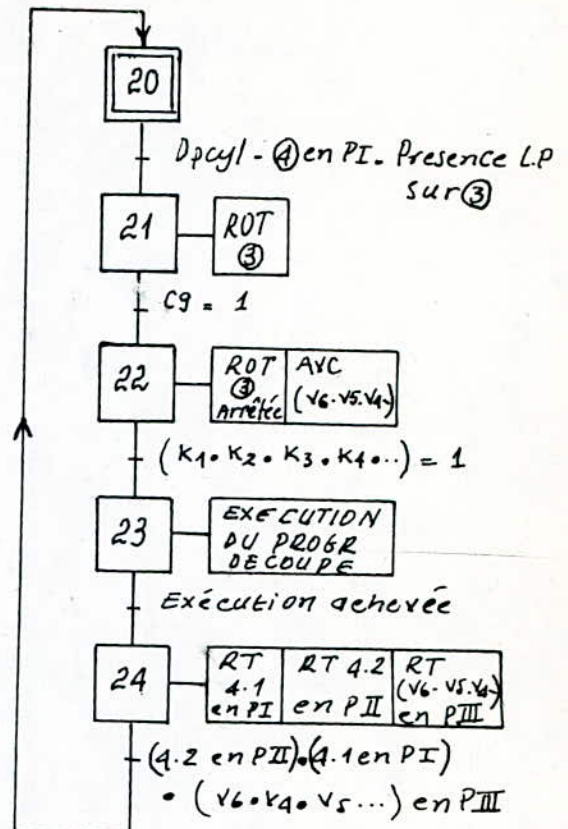 20
Dpcyl - ④ en PI. Presence L.P
sur ③
21
ROT
③
C9 = 1
22
ROT
③
Arrêtée
AVC
(V6. V5. V4.)
(K1 • K2 • K3 • K4 •..) = 1
23
EXECUTION
DU PROGR
DECOUPE
Exécution achevée
24
RT
4.1
en PI
RT 4.2
en PII
RT
(V6. V5. V4.)
en PIII
(4.2 en PII) • (4.1 en PI)
• (V6 • V4 • V5 ...) en PIII